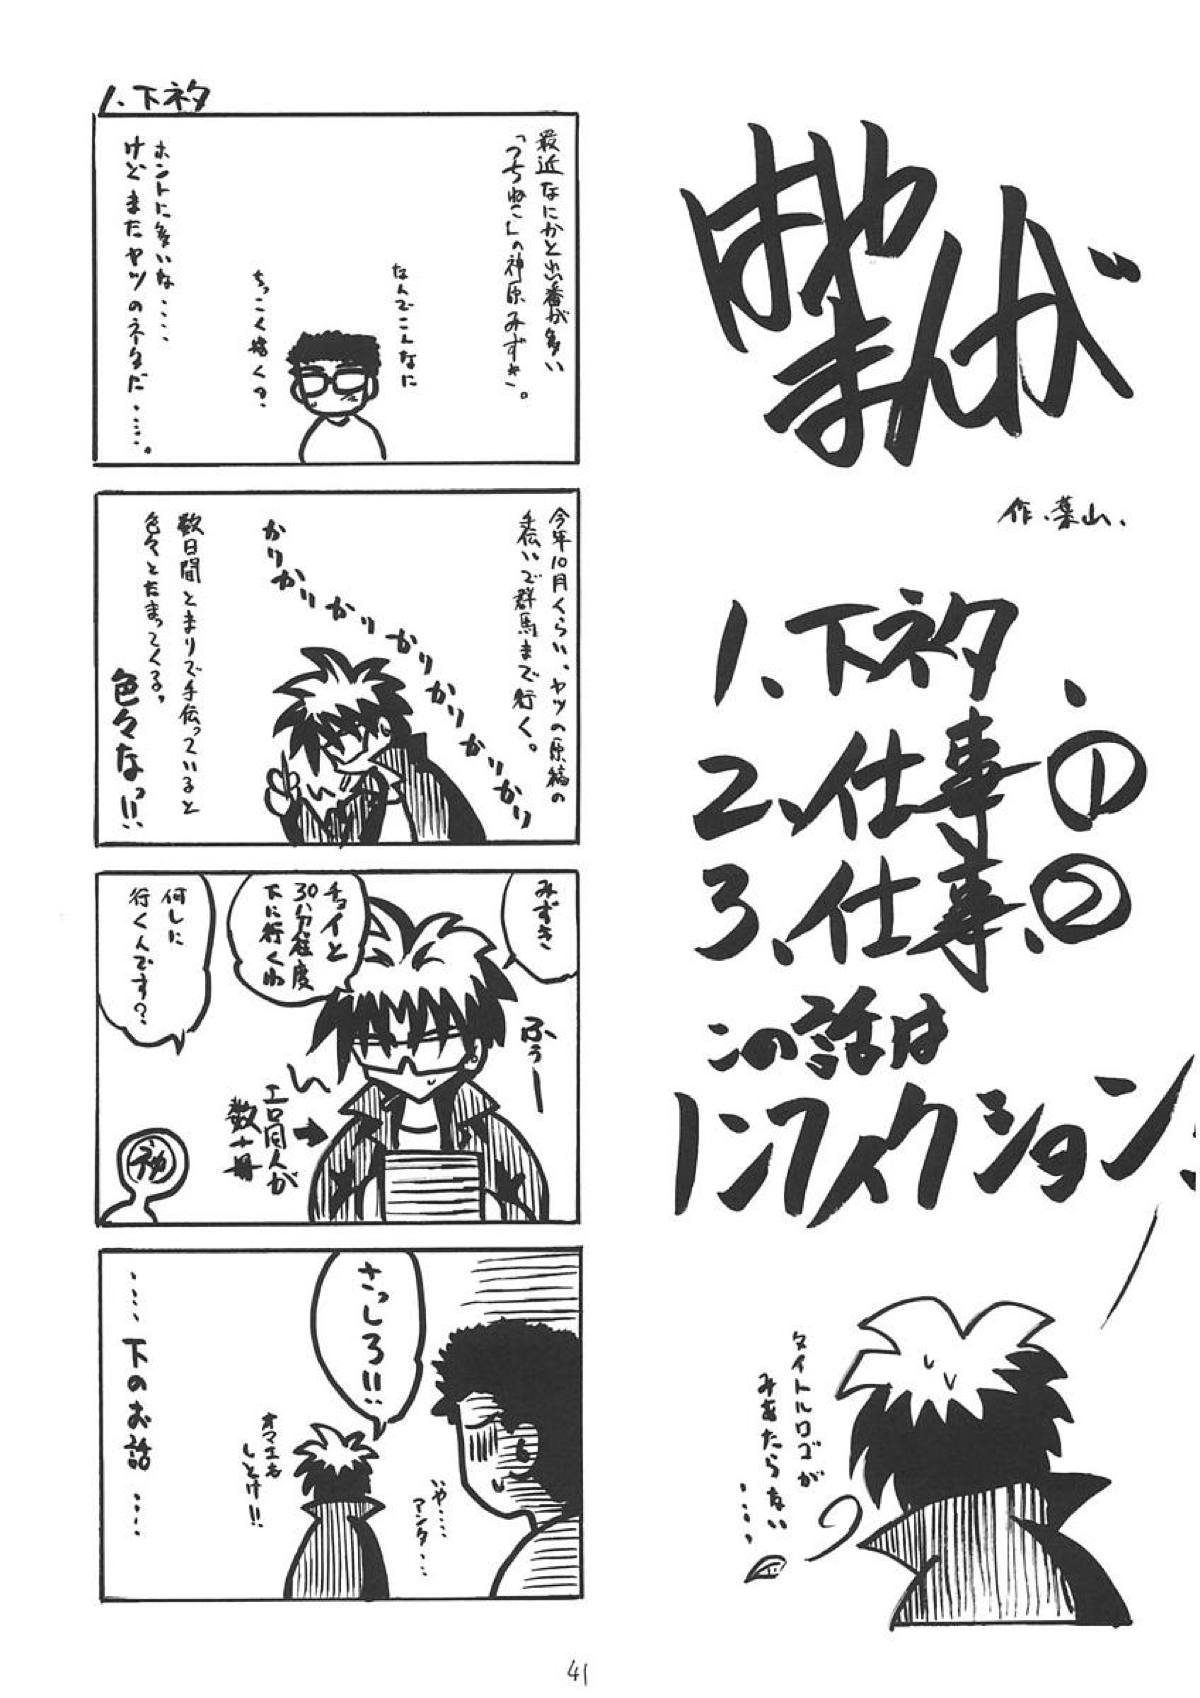 はやまんが
作.葉山.
1、下ネタ、
2、仕事①
3、仕事、②
この話は
ノンフィクション、
タイトルロゴが
みあたらない
‥‥
1、下ネタ
最近なにかと出番が多い
「つちねこ」の神原みずき。
なんでこんなに
ちっこく描くの.
ホントに多いな‥‥
けどまたヤツのネタだ‥‥‥。
今年10月くらい、ヤツの原稿の
手伝いで群馬まで行く。
かりかりかりかりかりかりかりかり
数日間とまりで手伝っていると
色々とたまってくる。
色々なっ!!
みずき
チョイと
30分程度
下に行くわ
ふぅー
エロ同人が
数十冊
何しに
行くんです?
神
さっしろ!!
いや‥‥
アンタ‥‥
オマエも
しとけ!!
‥‥下のお話‥‥
41